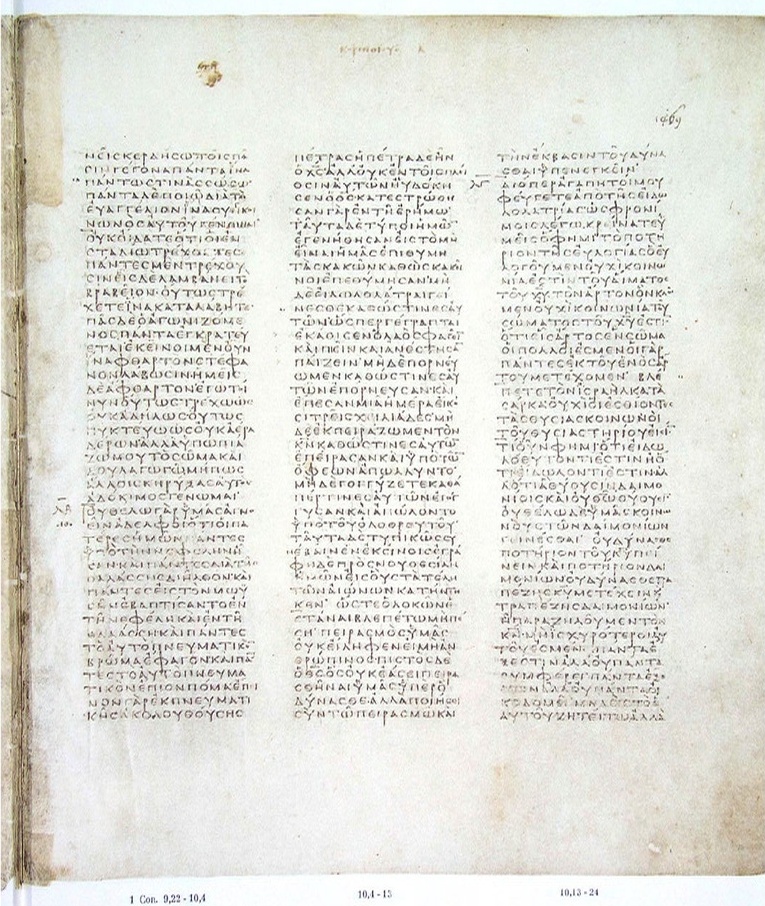 ΝΕΙϹΚΕΡΔΗϹΩΤΟΙϹΠΑ
ϹΙΝΓΕΓΟΝΑΠΑΝΤΑΙΝΑ
ΠΑΝΤΩϹΤΙΝΑϹϹΩϹΩ
ΠΑΝΤΑΔΕΠΟΙΩΔΙΑΤΟ
ΕΥΑΓΓΕΛΙΟΝΙΝΑϹΥΓΚΟΙ
ΝΩΝΟϹΑΥΤΟΥΓΕΝΩΜΑΙ
ΟΥΚΟΙΔΑΤΕΟΤΙΟΙΕΝ
ϹΤΑΔΙΩΤΡΕΧΟΝΤΕϹ
ΠΑΝΤΕϹΜΕΝΤΡΕΧΟΥ
ϹΙΝΕΙϹΔΕΛΑΜΒΑΝΕΙΤΟ
ΒΡΑΒΕΙΟΝΟΥΤΩϹΤΡΕ
ΧΕΤΕΙΝΑΚΑΤΑΛΑΒΗΤΕ
ΠΑϹΔΕΟΑΓΩΝΙΖΟΜΕ
ΝΟϹΠΑΝΤΑΕΓΚΡΑΤΕΥ
ΕΤΑΙΕΚΕΙΝΟΙΜΕΝΟΥΝ
ΙΝΑΦΘΑΡΤΟΝϹΤΕΦΑ
ΝΟΝΛΑΒΩϹΙΝΗΜΕΙϹ
ΔΕΑΦΘΑΡΤΟΝΕΓΩΤΟΙ
ΝΥΝΟΥΤΩϹΤΡΕΧΩΩϹ
ΟΥΚΑΔΗΛΩϹΟΥΤΩϹ
ΠΥΚΤΕΥΩΩϹΟΥΚΑΕΡΑ
ΔΕΡΩΝΑΛΛΑΥΠΩΠΙΑ
ΖΩΜΟΥΤΟϹΩΜΑΚΑΙ
ΔΟΥΛΑΓΩΓΩΜΗΠΩϹ
ΑΛΛΟΙϹΚΗΡΥΞΑϹΑΥΤΟϹ
ΑΔΟΚΙΜΟϹΓΕΝΩΜΑΙ
ΟΥΘΕΛΩΓΑΡΥΜΑϹΑΓΝΟ
ΕΙΝΑΔΕΛΦΟΙΟΤΙΟΙΠΑ
ΤΕΡΕϹΗΜΩΝΠΑΝΤΕϹ
ΥΠΟΤΗΝΝΕΦΕΛΗΝΗ
ϹΑΝΚΑΙΠΑΝΤΕϹΔΙΑΤΗϹ
ΘΑΛΑϹϹΗϹΔΙΗΛΘΟΝΚΑΙ
ΠΑΝΤΕϹΕΙϹΤΟΝΜΩΥ
ϹΗΝΕΒΑΠΤΙϹΑΝΤΟΕΝ
ΤΗΝΕΦΕΛΗΚΑΙΕΝΤΗ
ΘΑΛΑϹϹΗΚΑΙΠΑΝΤΕϹ
ΤΟΑΥΤΟΠΝΕΥΜΑΤΙΚΟΝ
ΒΡΩΜΑΕΦΑΓΟΝΚΑΙΠΑ
ΤΕϹΤΟΑΥΤΟΠΝΕΥΜΑ
ΤΙΚΟΝΕΠΙΟΝΠΟΜΑΕΠΙ
ΝΟΝΓΑΡΕΚΠΝΕΥΜΑΤΙ
ΚΗϹΑΚΟΛΟΥΘΟΥϹΗϹ
ΠΕΤΡΑϹΗΠΕΤΡΑΔΕΗΝ
ΟΧϹΑΛΛΟΥΚΕΝΤΟΙϹΠΛΙ
ΟϹΙΝΑΥΤΩΝΗΥΔΟΚΗ
ϹΕΝΟΘΟΚΑΤΕϹΤΡΩΘΗ
ϹΑΝΓΑΡΕΝΤΗΕΡΗΜΩ
ΤΑΥΤΑΔΕΤΥΠΟΙΗΜΩ
ΕΓΕΝΗΘΗϹΑΝΕΙϹΤΟΜΗ
ΕΙΝΑΙΗΜΑϹΕΠΙΘΥΜΗ
ΤΑϹΚΑΚΩΝΚΑΘΩϹΚΑΚΕΙ
ΝΟΙΕΠΕΘΥΜΗϹΑΝΜΗ
ΔΕΕΙΔΩΛΟΛΑΤΡΑΙΓΕΙ
ΝΕϹΘΕΚΑΘΩϹΤΙΝΕϹΑΥ
ΤΩΝΩϹΠΕΡΓΕΓΡΑΠΤΑΙ
ΕΚΑΘΙϹΕΝΟΛΑΟϹΦΑΓΕΙ
ΚΑΙΠΕΙΝΚΑΙΑΝΕϹΤΗϹΑ
ΠΑΙΖΕΙΝΜΗΔΕΠΟΡΝΕΥ
ΩΜΕΝΚΑΘΩϹΤΙΝΕϹΑΥ
ΤΩΝΕΠΟΡΝΕΥϹΑΝΚΑΙ
ΕΠΕϹΑΝΜΙΑΗΜΕΡΑΕΙΚΟ
ϹΙΤΡΕΙϹΧΕΙΛΙΑΔΕϹΜΗ
ΔΕΕΚΠΕΙΡΑΖΩΜΕΝΤΟΝ
ΚΝΚΑΘΩϹΤΙΝΕϹΑΥΤΩ
ΕΠΕΙΡΑϹΑΝΚΑΙΥΠΟΤΩ
ΟΦΕΩΝΑΠΩΛΛΥΝΤΟ
ΜΗΔΕΓΟΓΓΥΖΕΤΕΚΑΘΑ
ΠΕΡΤΙΝΕϹΑΥΤΩΝΕΓΟΓ
ΓΥϹΑΝΚΑΙΑΠΩΛΟΝΤΟ
ΥΠΟΤΟΥΟΛΟΘΡΕΥΤΟΥ
ΤΑΥΤΑΔΕΤΥΠΙΚΩϹϹΥ
ΕΒΑΙΝΕΝΕΚΕΙΝΟΙϹΕΓΡΑ
ΦΗΔΕΠΡΟϹΝΟΥΘΕϹΙΑΝ
ΗΜΩΝΕΙϹΟΥϹΤΑΤΕΛΗ
ΤΩΝΑΙΩΝΩΝΚΑΤΗΝΤΗ
ΚΕΝΩϹΤΕΟΔΟΚΩΝΕ
ϹΤΑΝΑΙΒΛΕΠΕΤΩΜΗΠΕ
ϹΗΠΕΙΡΑϹΜΟϹΥΜΑϹ
ΟΥΚΕΙΛΗΦΕΝΕΙΜΗΑΝ
ΘΡΩΠΙΝΟϹΠΙϹΤΟϹΔΕ
ΟΘϹΟϹΟΥΚΕΑϹΕΙΠΕΙΡΑ
ϹΘΗΝΑΙΥΜΑϹΥΠΕΡΟ
ΔΥΝΑϹΘΕΑΛΛΑΠΟΙΗϹΕΙ
ϹΥΝΤΩΠΕΙΡΑϹΜΩΚΑΙ
ΤΗΝΕΚΒΑϹΙΝΤΟΥΔΥΝΑ
ϹΘΑΙΥΠΕΝΕΓΚΕΙΝ
ΔΙΟΠΕΡΑΓΑΠΗΤΟΙΜΟΥ
ΦΕΥΓΕΤΕΑΠΟΤΗϹΕΙΔΩ
ΛΟΛΑΤΡΙΑϹΩϹΦΡΟΝΙ
ΜΟΙϹΛΕΓΩΚΡΕΙΝΑΤΕΥ
ΜΕΙϹΟΦΗΜΙΤΟΠΟΤΗ
ΡΙΟΝΤΗϹΕΥΛΟΓΙΑϹΟΕΥ
ΛΟΓΟΥΜΕΝΟΥΧΙΚΟΙΝΩ
ΝΙΑΕϹΤΙΝΤΟΥΑΙΜΑΤΟϹ
ΤΟΥΧΥΤΟΝΑΡΤΟΝΟΝΚΛΩ
ΜΕΝΟΥΧΙΚΟΙΝΩΝΙΑΤΟΥ
ϹΩΜΑΤΟϹΤΟΥΧΥΕϹΤΙ
ΟΤΙΕΙϹΑΡΤΟϹΕΝϹΩΜΑ
ΟΙΠΟΛΛΟΙΕϹΜΕΝΟΙΓΑΡ
ΠΑΝΤΕϹΕΚΤΟΥΕΝΟϹΑΡ
ΤΟΥΜΕΤΕΧΟΜΕΝΒΛΕ
ΠΕΤΕΤΟΝΙϹΡΑΗΛΚΑΤΑ
ϹΑΡΚΑΟΥΧΟΙΕϹΘΙΟΝΤΕϹ
ΤΑϹΘΥϹΙΑϹΚΟΙΝΩΝΟΙ
ΤΟΥΘΥϹΙΑϹΤΗΡΙΟΥΕΙϹΙ
ΤΙΟΥΝΦΗΜΙΟΤΙΕΙΔΩ
ΛΟΘΥΤΟΝΤΙΕϹΤΙΝΗΟ
ΤΙΕΙΔΩΛΟΝΤΙΕϹΤΙΝΑΛ
ΛΟΤΙΑΘΥΟΥϹΙΝΔΑΙΜΟ
ΝΙΟΙϹΚΑΙΟΥΘΩΘΥΟΥϹΙ
ΟΥΘΕΛΩΔΕΥΜΑϹΚΟΙΝΩ
ΝΟΥϹΤΩΝΔΑΙΜΟΝΙΩΝ
ΓΕΙΝΕϹΘΑΙΟΥΔΥΝΑϹΘΕ
ΠΟΤΗΡΙΟΝΤΟΥΚΥΠΕΙ
ΝΕΙΝΚΑΙΠΟΤΗΡΙΟΝΔΑΙ
ΜΟΝΙΩΝΟΥΔΥΝΑϹΘΕΤΡΑ
ΠΕΖΗϹΚΥΜΕΤΕΧΕΙΝΚ
ΤΡΑΠΕΖΗϹΔΑΙΜΟΝΙΩΝ
ΗΠΑΡΑΖΗΛΟΥΜΕΝΤΟΝ
ΚΝΜΗΙϹΧΥΡΟΤΕΡΟΙΑΥ
ΤΟΥΕϹΜΕΝΠΑΝΤΑΕ
ΞΕϹΤΙΝΑΛΛΟΥΠΑΝΤΑ
ϹΥΜΦΕΡΕΙΠΑΝΤΑΕΞΕ
ϹΤΙΝΑΛΛΟΥΠΑΝΤΑΟΙ
ΚΟΔΟΜΕΙΜΗΔΕΙϹΤΟΕ
ΑΥΤΟΥΖΗΤΕΙΤΩΑΛΛΑ
1 Cor. 9,22 - 10,4
10,4 - 13
10,13 - 24